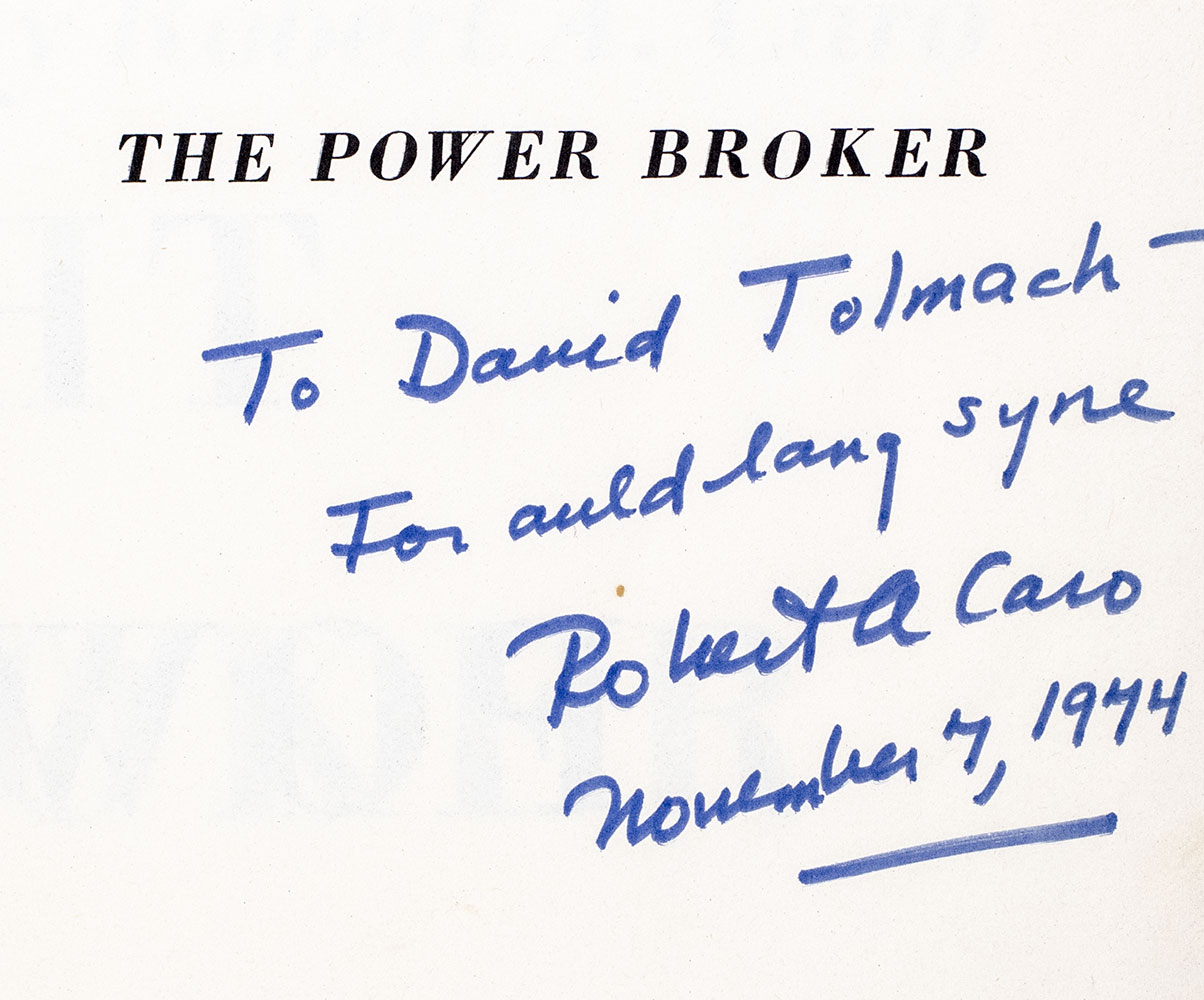 THE POWER BROKER
To David Tolmach —
For auld lang syne
Robert A Caro
November 7, 1974